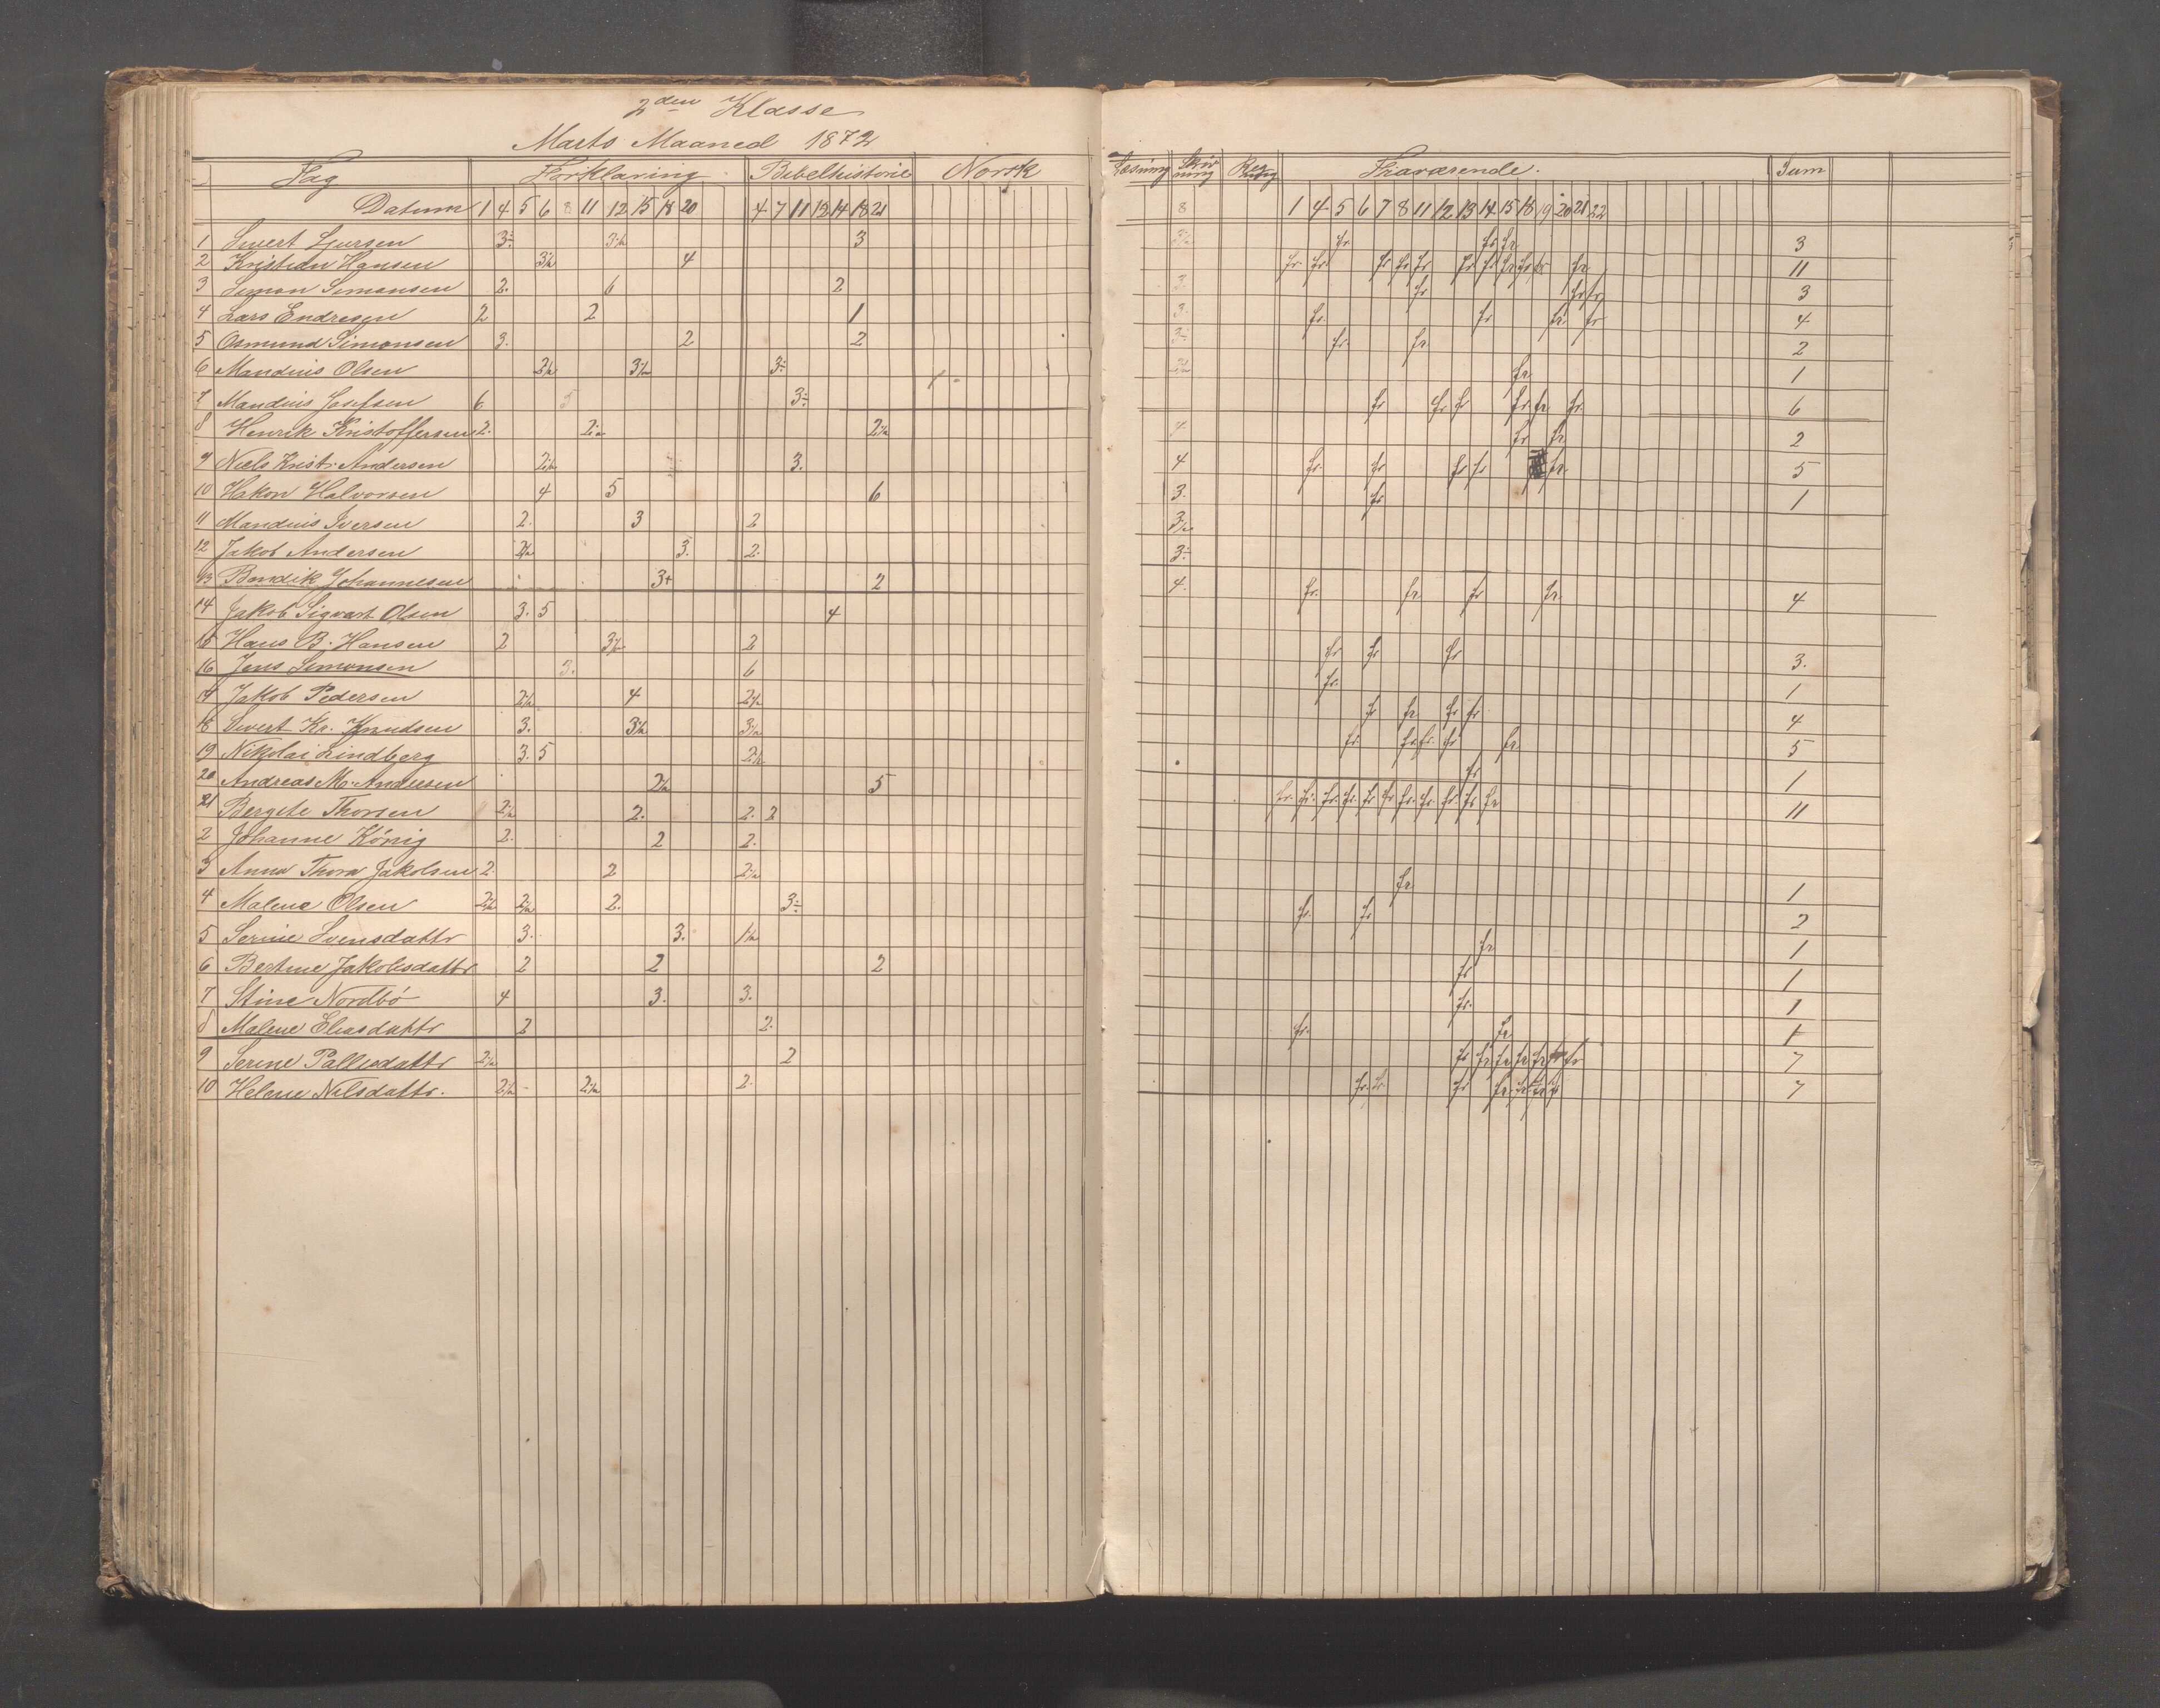 2den Klasse
Marts Maaned 1872
Fag Forklaring Bibelhistorie Norsk
Datum 1 4 5 6 8 11 12 15 18 20 4 7 11 12 14 18 21
1 Sivert 3 3
2 Kristian Hansen 3½ 4
3 Simon Simonsen 2. 6 2
4 Lars Endresen 2 2 1
5 Osmund Simonsen 3. 2 2
6 Mandius Olsen 2½ 3½ 3
7 Mandius Josefsen 6 5 3
8 Henrik Kristoffersen 2. 2½
9 Niels Krist. Andersen 2½ 3.
10 Hakon Halvorsen 4 5 6
11 Mandius Iversen 2. 3 2
12 Jakob Andersen 2½ 3. 2.
13 Bendik Johannesen 3+ 2
14 Jakob Sigvart Olsen 3. 5 4
15 Hans B. Hansen 2 3½ 2
16 Jens Simonsen 3. 6
17 Jakob Pedersen 2½ 4 2½
18 Sivert Kr. Knudsen 3. 3½ 3½
19 Nikolai Lindberg 3. 5 2½
20 Andreas M. Andresen 2½ 5
21 Bergete Thorsen 2½ 2. 2. 2
2 Johanne König 2. 2 2.
3 Anna Thora Jakobsen 2. 2 2½
4 Malene Olsen 2½ 2½ 2. 3
5 Serine Svensdattr 3. 3. 1½
6 Bertine Jakobsdattr 2 2 2
7 Stine Nordbö 4 3. 3.
8 Malene Eliasdattr 2 2.
9 Serine Pallesdattr 2½ 2
10 Helene Nilsdattr. 2½ 2½ 2.
Læsning Skrivning Regning Fraværende. Sum
8 1 4 5 6 7 8 11 12 13 14 15 18 19 20 21 22
3½ fr fr fr 3
fr. fr. fr fr fr fr fr fr fr fr fr 11
3. fr fr fr 3
3. fr. fr fr. fr 4
3 fr. fr 2
2½ fr 1
fr fr fr fr. fr fr. 6
4 fr fr 2
4 fr. fr fr fr fr. 5
3. fr 1
3½
3
4. fr. fr fr fr 4
fr fr fr 3.
fr. 1
fr fr fr fr 4
fr. fr fr. fr fr 5
fr 1
fr. fr. fr. fr. fr fr fr. fr. fr. fr fr 11
fr 1
fr. fr 2
fr 1
fr 1
fr. 1
fr. fr 1
fr fr fr fr fr fr fr 7
fr. fr. fr fr fr fr fr 7